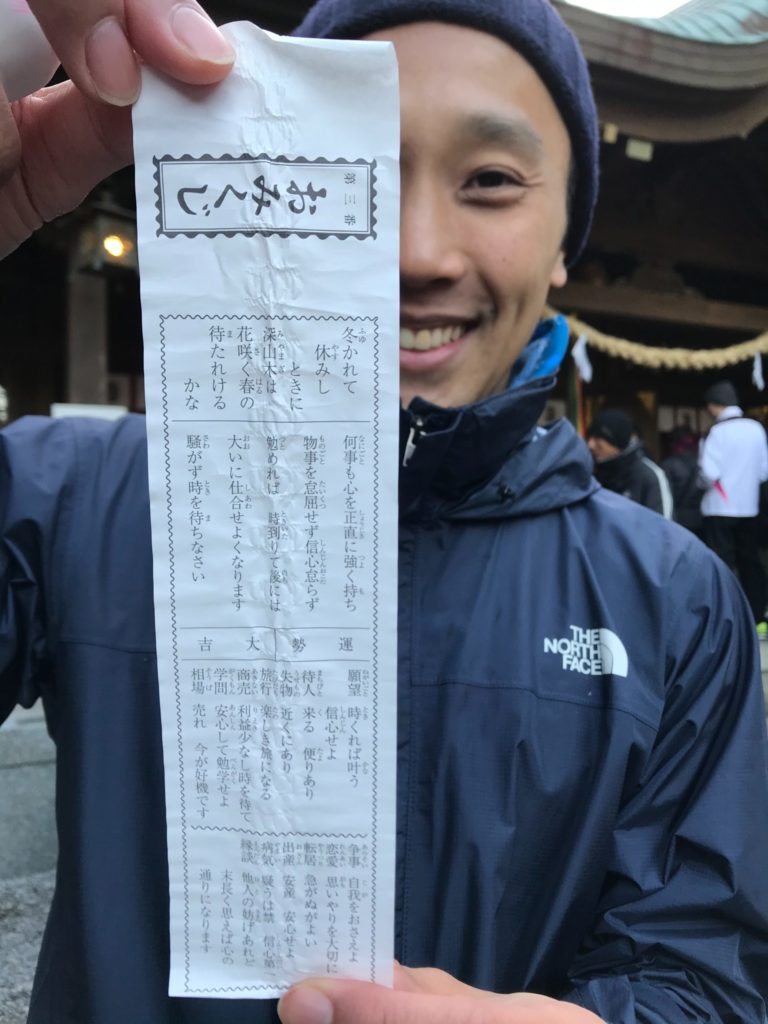 第三番
おみくじ
冬かれて
休みし
ときに
深山木は
花咲く春の
待たれける
かな
何事も心を正直に強く持ち
物事を怠屈せず信心怠らず
勉めれば 時到りて後には
大いに仕合せよくなります
騒がず時を待ちなさい
運勢 大吉
願望 時くれば叶う
信心せよ
待人 来る 便りあり
失物 近くにあり
旅行 楽しき旅になる
商売 利益少なし時を待て
学問 安心して勉学せよ
相場 売れ 今が好機です
争事 自我をおさえよ
恋愛 思いやりを大切に
転居 急がぬがよい
出産 安産 安心せよ
病気 疑うは禁 信心第一
縁談 他人の妨げあれど
末長く思えば心の
通りになります
THE
NORTH
FACE